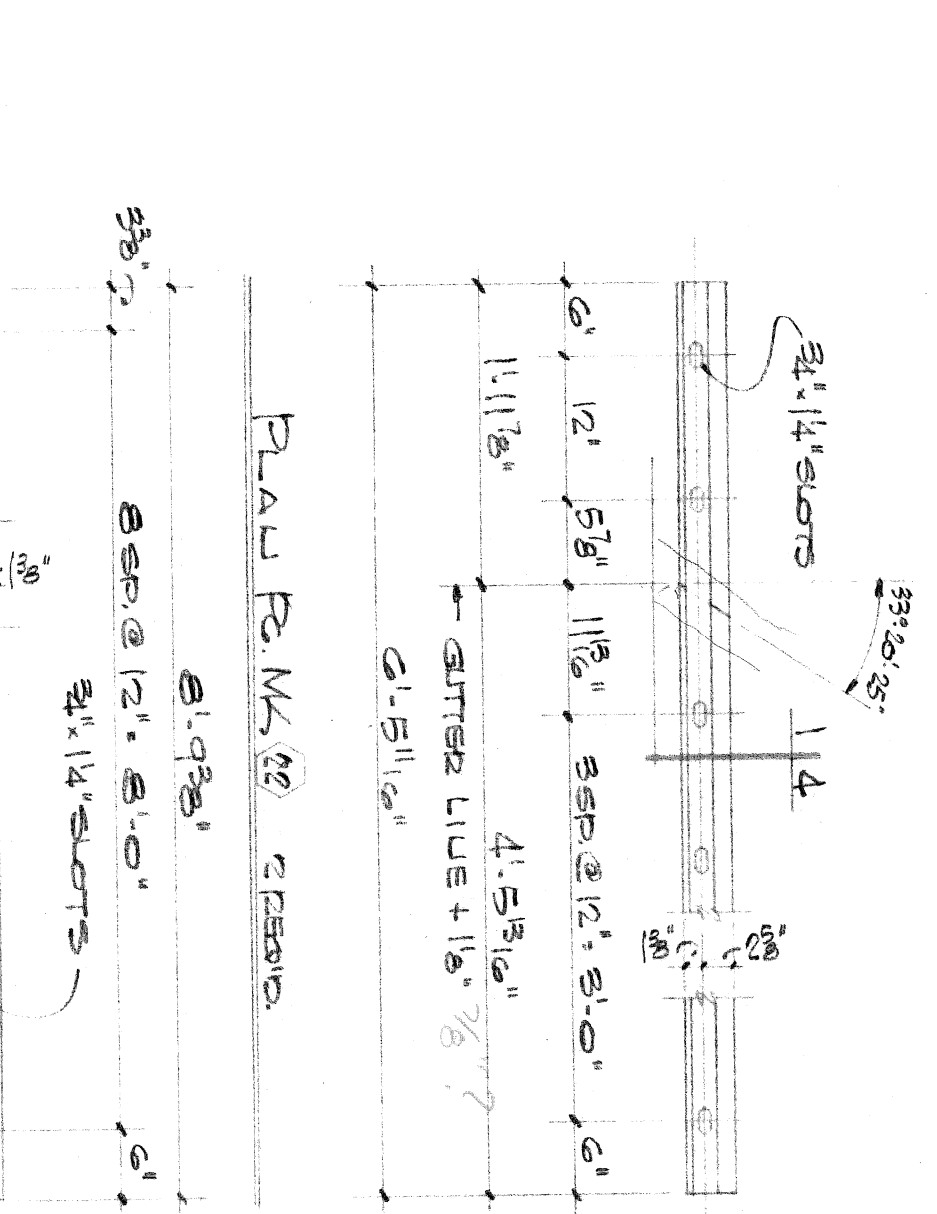 3/4" x 1 1/4" SLOTS
33°-20'-25"
1
4
1 3/8"
2 5/8"
6"
12"
5 7/8"
11 13/16"
3 SP. @ 12" = 3'-0"
6"
1'-11 7/8"
4'-5 13/16"
← GUTTER LINE + 1 1/8" 7/8"?
6'-5 11/16"
PLAN PC. MK. 22 2 REQ'D.
8'-9 3/8"
3 3/8"
8 SP. @ 12" = 8'-0"
6"
3/4" x 1 1/4" SLOTS
1 3/8"